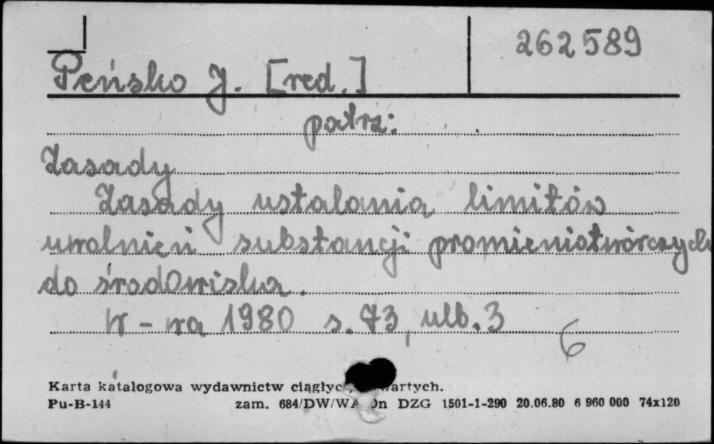 262589
Peńsko J. [red.]
patrz:
Zasady
Zasady ustalania limitów
uwolnień substancji promieniotwórczych
do środowiska.
W-wa 1980 s. 73, ulb. 3
6
Karta katalogowa wydawnictw ciągłyc wartych.
Pu-B-144 zam. 684/DW/WA Dn DZG 1501-1-290 20.06.80 6 960 000 74x120